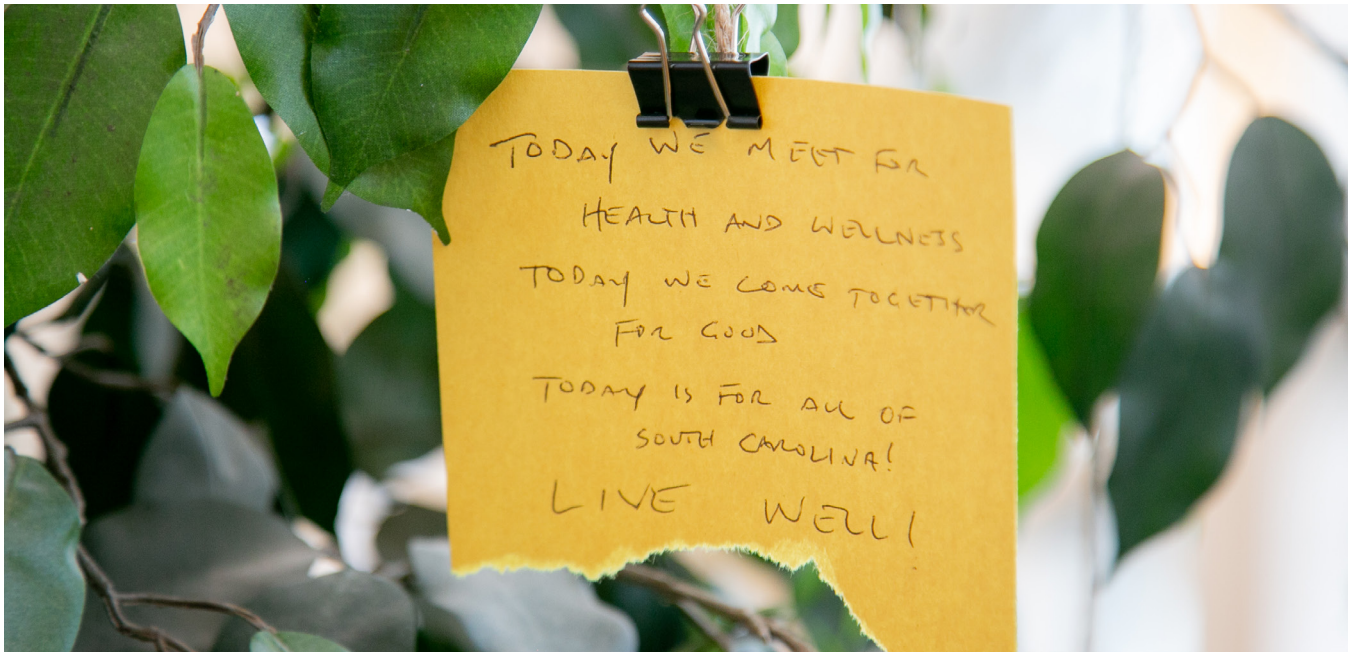 TODAY WE MEET FOR
HEALTH AND WELLNESS
TODAY WE COME TOGETHER
FOR GOOD
TODAY IS FOR ALL OF
SOUTH CAROLINA!
LIVE WELL!